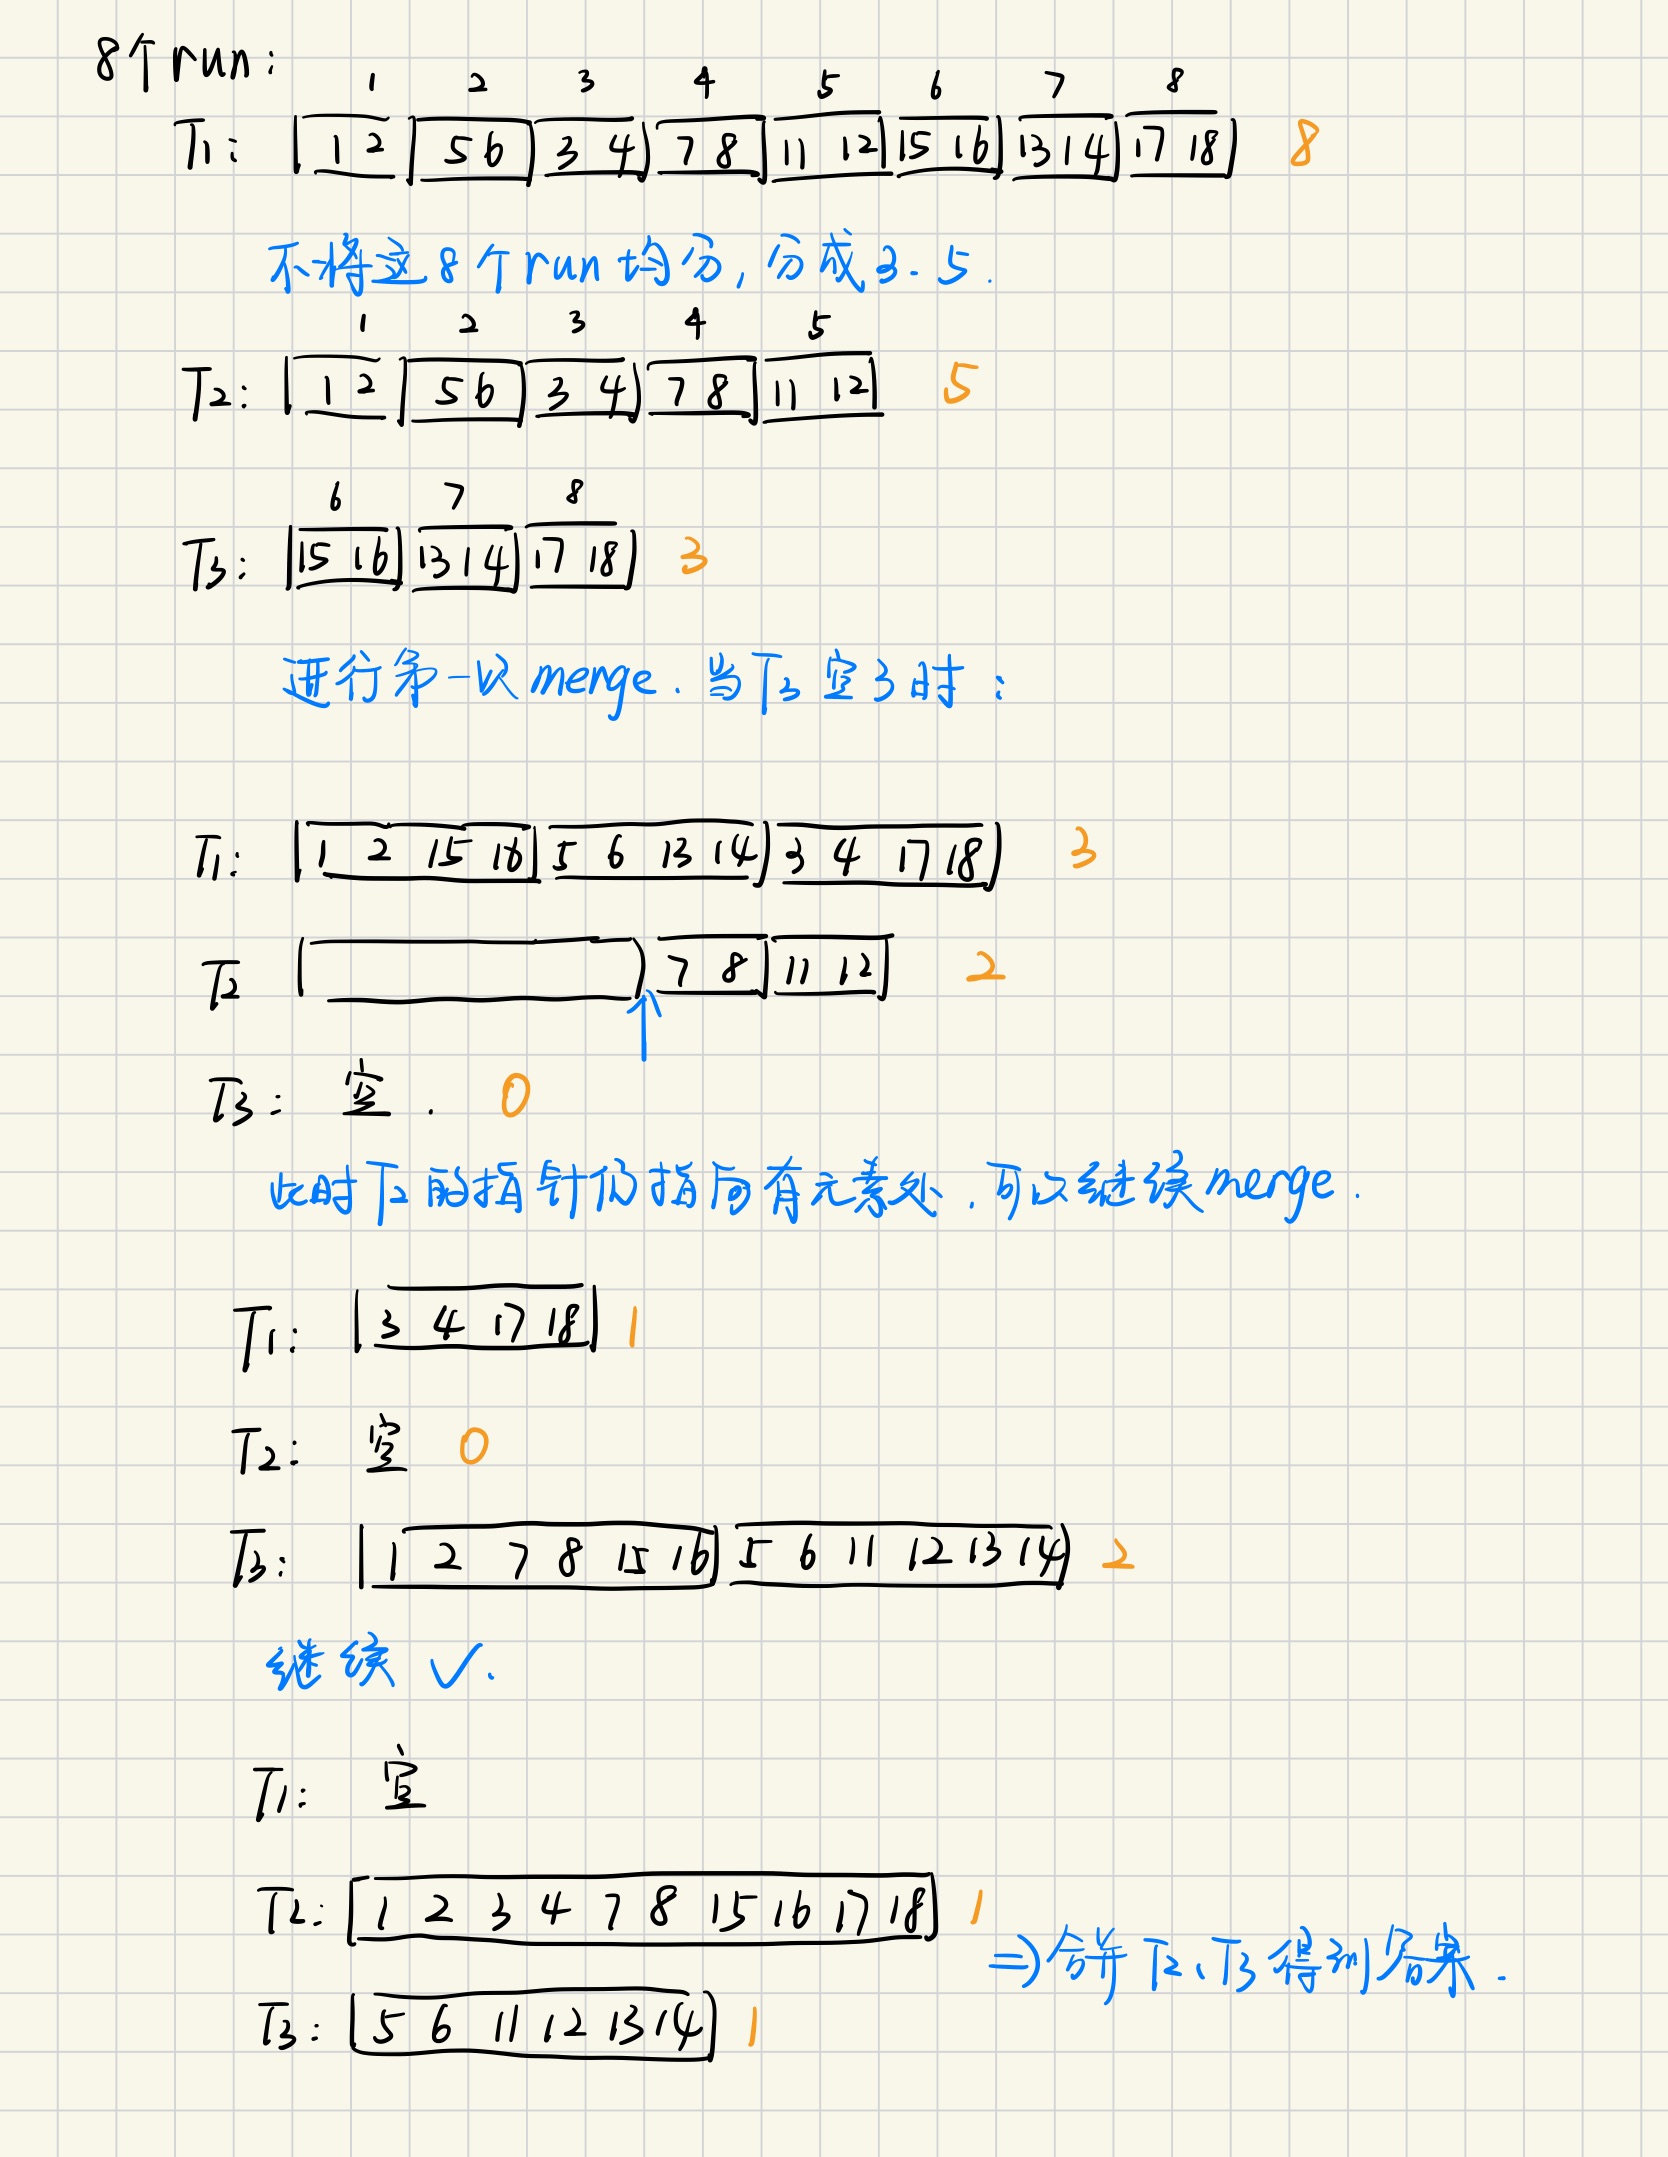 8个run:
1 2 3 4 5 6 7 8
T1: 1 2 5 6 3 4 7 8 11 12 15 16 13 14 17 18 8
不将这8个run均分,分成3.5.
1 2 3 4 5
T2: 1 2 5 6 3 4 7 8 11 12 5
6 7 8
T3: 15 16 13 14 17 18 3
进行第一次merge.当T3空了时:
T1: 1 2 15 16 5 6 13 14 3 4 17 18 3
T2 7 8 11 12 2
↑
T3: 空. 0
此时T2的指针仍指向有元素处,可以继续merge.
T1: 3 4 17 18 1
T2: 空 0
T3: 1 2 7 8 15 16 5 6 11 12 13 14 2
继续 ✓.
T1: 空
T2: 1 2 3 4 7 8 15 16 17 18 1
⇒合并T2、T3得到答案.
T3: 5 6 11 12 13 14 1